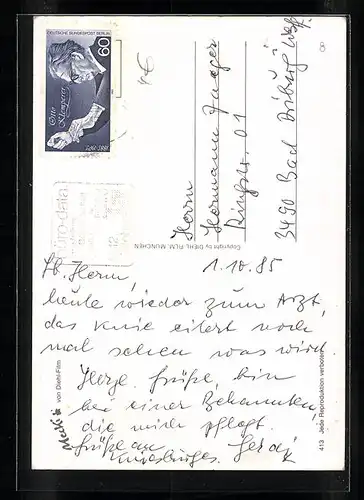 DEUTSCHE BUNDESPOST BERLIN
60
Otto Klemperer
1885-1973
euro-data
Herrn
Hermann Jaeger
Ringstr. 01
3490 Bad Driburg Westf.
8
Copyright by DIEHL-FILM, MÜNCHEN
1.10.85
Lb. Herm,
heute wieder zum Arzt,
das Knie eitert noch
mal sehen was wird
Herzl. Grüße, bin
bei einer Bekannten
die mich pflegt.
Grüße an
Gerd
Mecki von Diehl-Film
413 Jede Reproduktion verboten